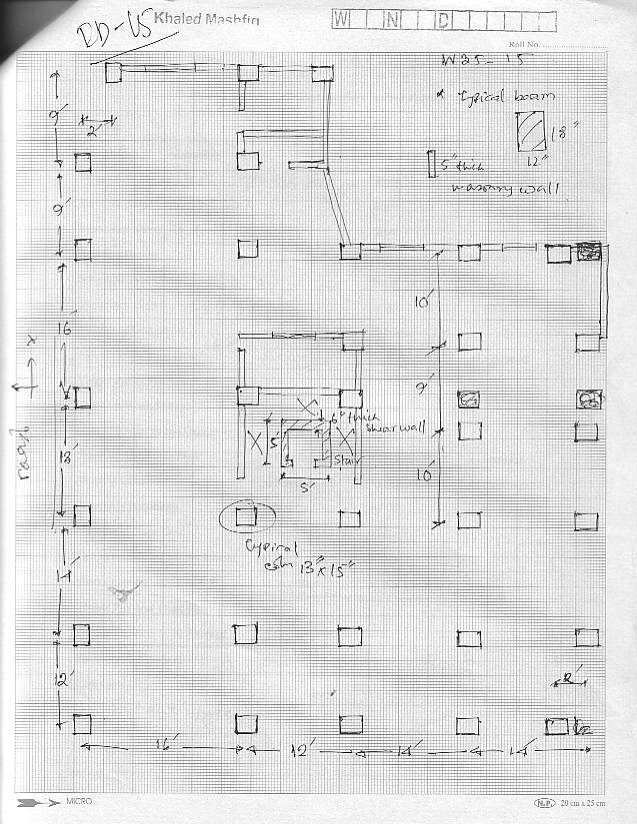 DD-U5
Khaled Mashfiq
W N D
Roll No.
W25-15
* Typical beam
18"
12"
5" thick
masonry wall
9'
2'
9'
16'
18'
14'
12'
10'
9'
10'
6" thick
shear wall
5'
stair
5'
road
x
Typical
colm 13" x 15"
2'
16' 12' 14' 14'
MICRO
N.P. 20 cm x 25 cm